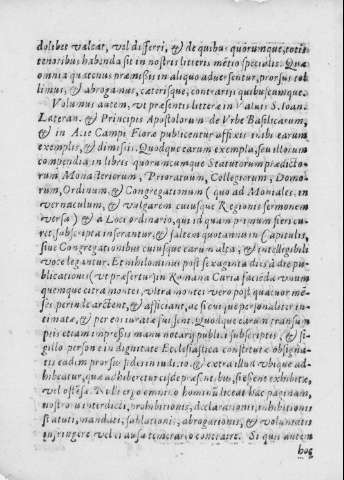 dolibet valeat, vel differri, & de quibus quorumque, totis
tenoribus habenda sit in nostris litteris mētio specialis. Quæ
omnia quatenus præmissis in aliquo aduersentur, prorsus tol
limus, & abrogamus, cæterisque, contrarijs quibuscumque.
Volumus autem, ut præsentes litteræ in Valuis S. Ioan.
Lateran. & Principis Apostolorum de Vrbe Basilicarum,
& in Acie Campi Floræ publicentur affixis inibi earum
exemplis, & dimissis. Quodque earum exempla, seu illorum
compendia in libros quorumcumque Statutorum prædicto-
rum Monasteriorum, Prioratuum, Collegiorum, Domo-
rum, Ordinum, & Congregationum (quo ad Moniales, in
vernaculum, & vulgarem cuiusque Regionis sermonem
versa) & a Loci ordinario, qui id quam primum fieri cu-
ret, subscripta inserantur, & saltem quotannis in Capitulis,
siue Congregationibus cuiusque earum alta, & intelligibili
voce legantur. Et nihilominus post sexaginta dies à die pu-
blicationis (ut præfertur) in Romana Curia faciēda unum
quemque citra montes, ultra montes vero post quatuor mē-
ses perinde arctent, & afficiant, ac si cuique personaliter in-
timatæ, & per eos iuratæ fuissent. Quodque earum transum
ptis etiam impressis manu notarij publici subscriptis, & si-
gillo personæ in dignitate Ecclesiastica constitutæ obsigna-
tis eadem prorsus fides in iudicio, & extra illud ubique ad-
hibeatur, quæ adhiberetur eisdē præsentibus, si essent exhibitæ,
vel ostēsæ. Nulli ergo omnino hominū liceat hāc paginam,
nostrorū interdicti, prohibitionis, declarationis, inhibitionis
statuti, mandati, sublationis, abrogationis, & voluntatis
infringere vel ei ausu temerario contraire. Si quis autem
hoc